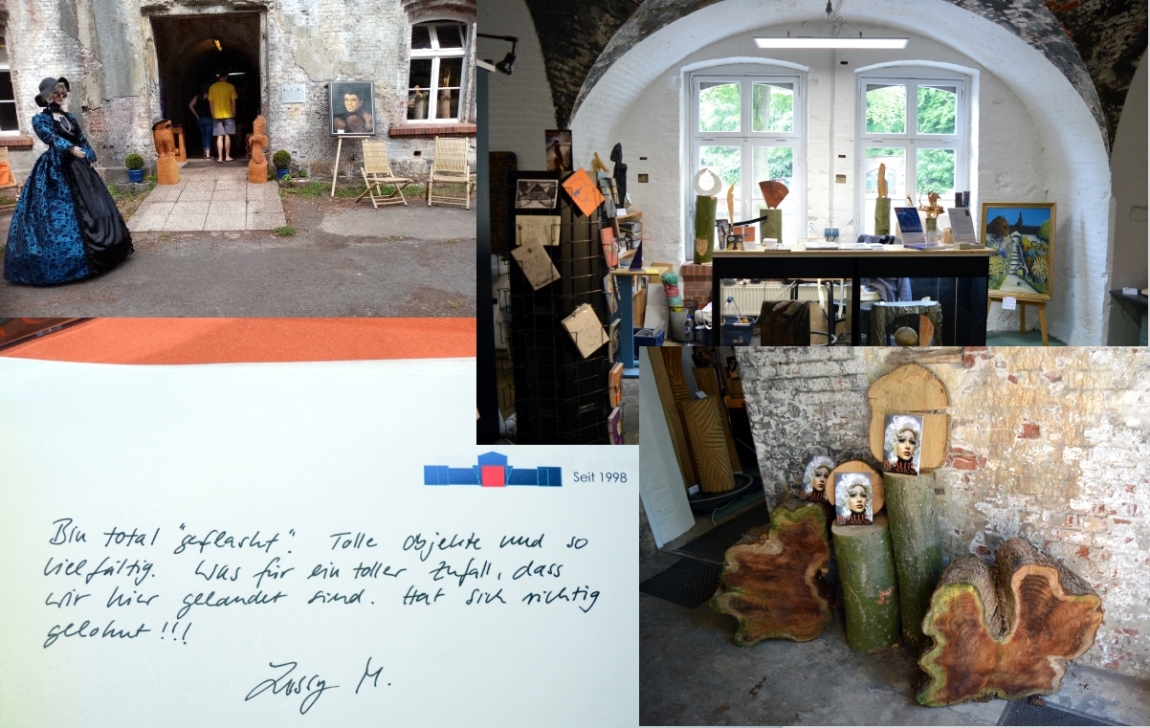 Seit 1998
Bin total "geflasht". Tolle Objekte und so
vielfältig. Was für ein toller Zufall, dass
wir hier gelandet sind. Hat sich richtig
gelohnt!!!
M.